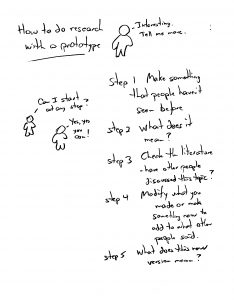 How to do research
with a prototype
Interesting.
Tell me more.
Can I start
at any step?
Yes, yo
you can!
Step 1 Make something
that people haven't
seen before
step 2 What does it
mean?
step 3 Check the literature
- have other people
discussed this topic?
step 4 Modify what you
made or make
something new to
add to what other
people said.
step 5 What does this new
version mean?